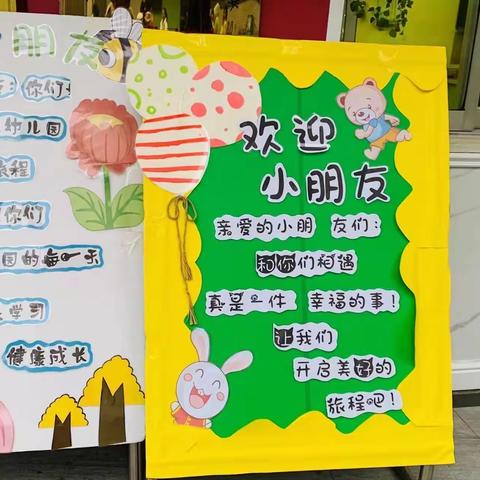 朋友
你们
幼儿园
旅程
你们
园的每一天
学习
健康成长
欢迎
小朋友
亲爱的小朋 友们:
和你们相遇
真是一件 幸福的事!
让我们
开启美好的
旅程吧!